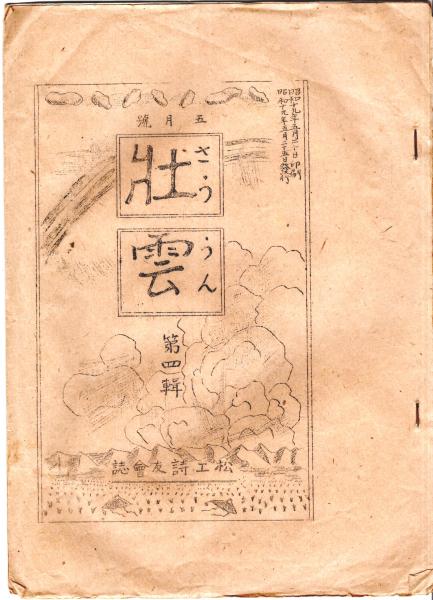 昭和十九年五月二十日印刷
昭和十九年五月二十五日發行
五月號
壯雲
さううん
第四輯
松工詩友會誌